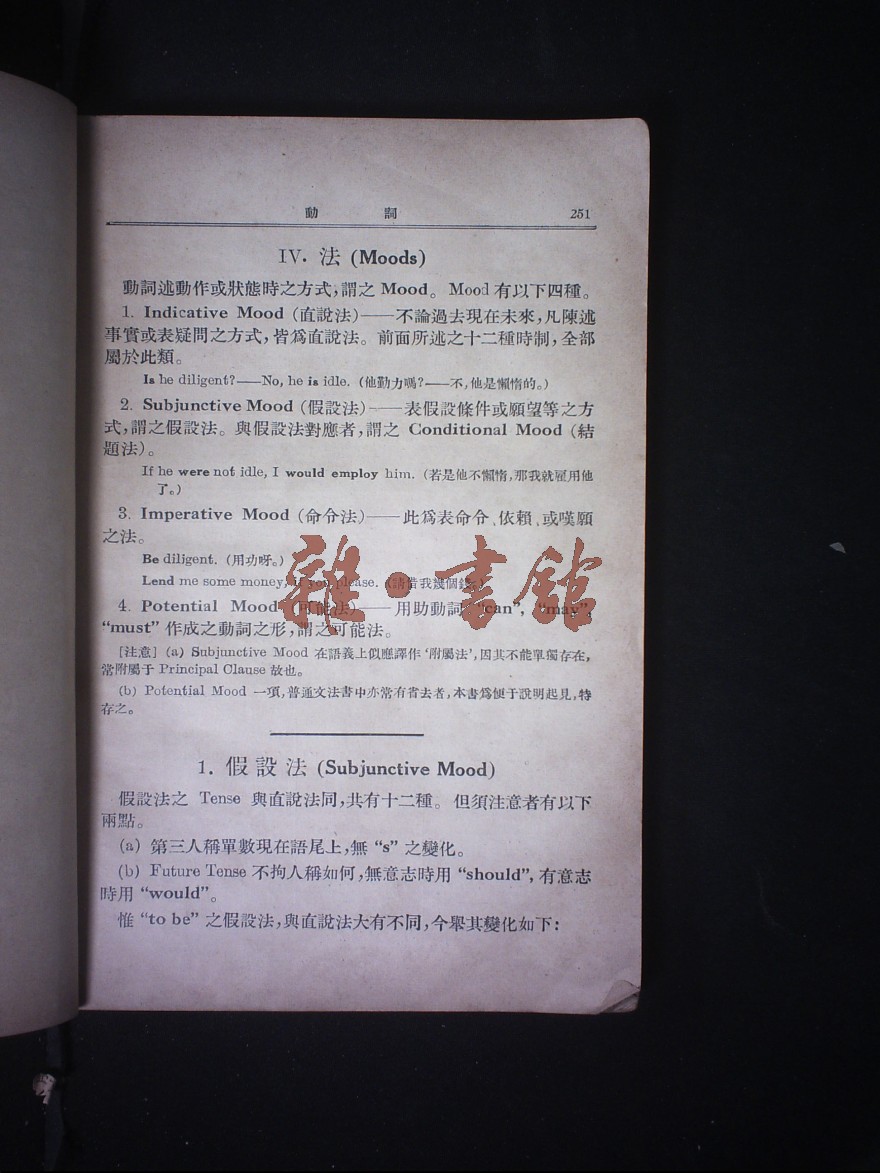 動　詞　251
IV. 法 (Moods)
動詞述動作或狀態時之方式,謂之 Mood。Mood 有以下四種。
1. Indicative Mood (直說法)——不論過去現在未來,凡陳述
事實或表疑問之方式,皆爲直說法。前面所述之十二種時制,全部
屬於此類。
Is he diligent?——No, he is idle. (他勤力嗎?——不,他是懶惰的。)
2. Subjunctive Mood (假設法)——表假設條件或願望等之方
式,謂之假設法。與假設法對應者,謂之 Conditional Mood (結
題法)。
If he were not idle, I would employ him. (若是他不懶惰,那我就雇用他
了。)
3. Imperative Mood (命令法)——此爲表命令、依賴、或嘆願
之法。
Be diligent. (用功呀。)
Lend me some money, if you please. (請借我幾個錢。)
4. Potential Mood (可能法)——用助動詞 "can", "may",
"must" 作成之動詞之形,謂之可能法。
雜·書館
[注意] (a) Subjunctive Mood 在語義上似應譯作'附屬法',因其不能單獨存在,
常附屬于 Principal Clause 故也。
(b) Potential Mood 一項,普通文法書中亦常有省去者,本書爲便于說明起見,特
存之。
1. 假設法 (Subjunctive Mood)
假設法之 Tense 與直說法同,共有十二種。但須注意者有以下
兩點。
(a) 第三人稱單數現在語尾上,無 "s" 之變化。
(b) Future Tense 不拘人稱如何,無意志時用 "should", 有意志
時用 "would"。
惟 "to be" 之假設法,與直說法大有不同,今舉其變化如下: